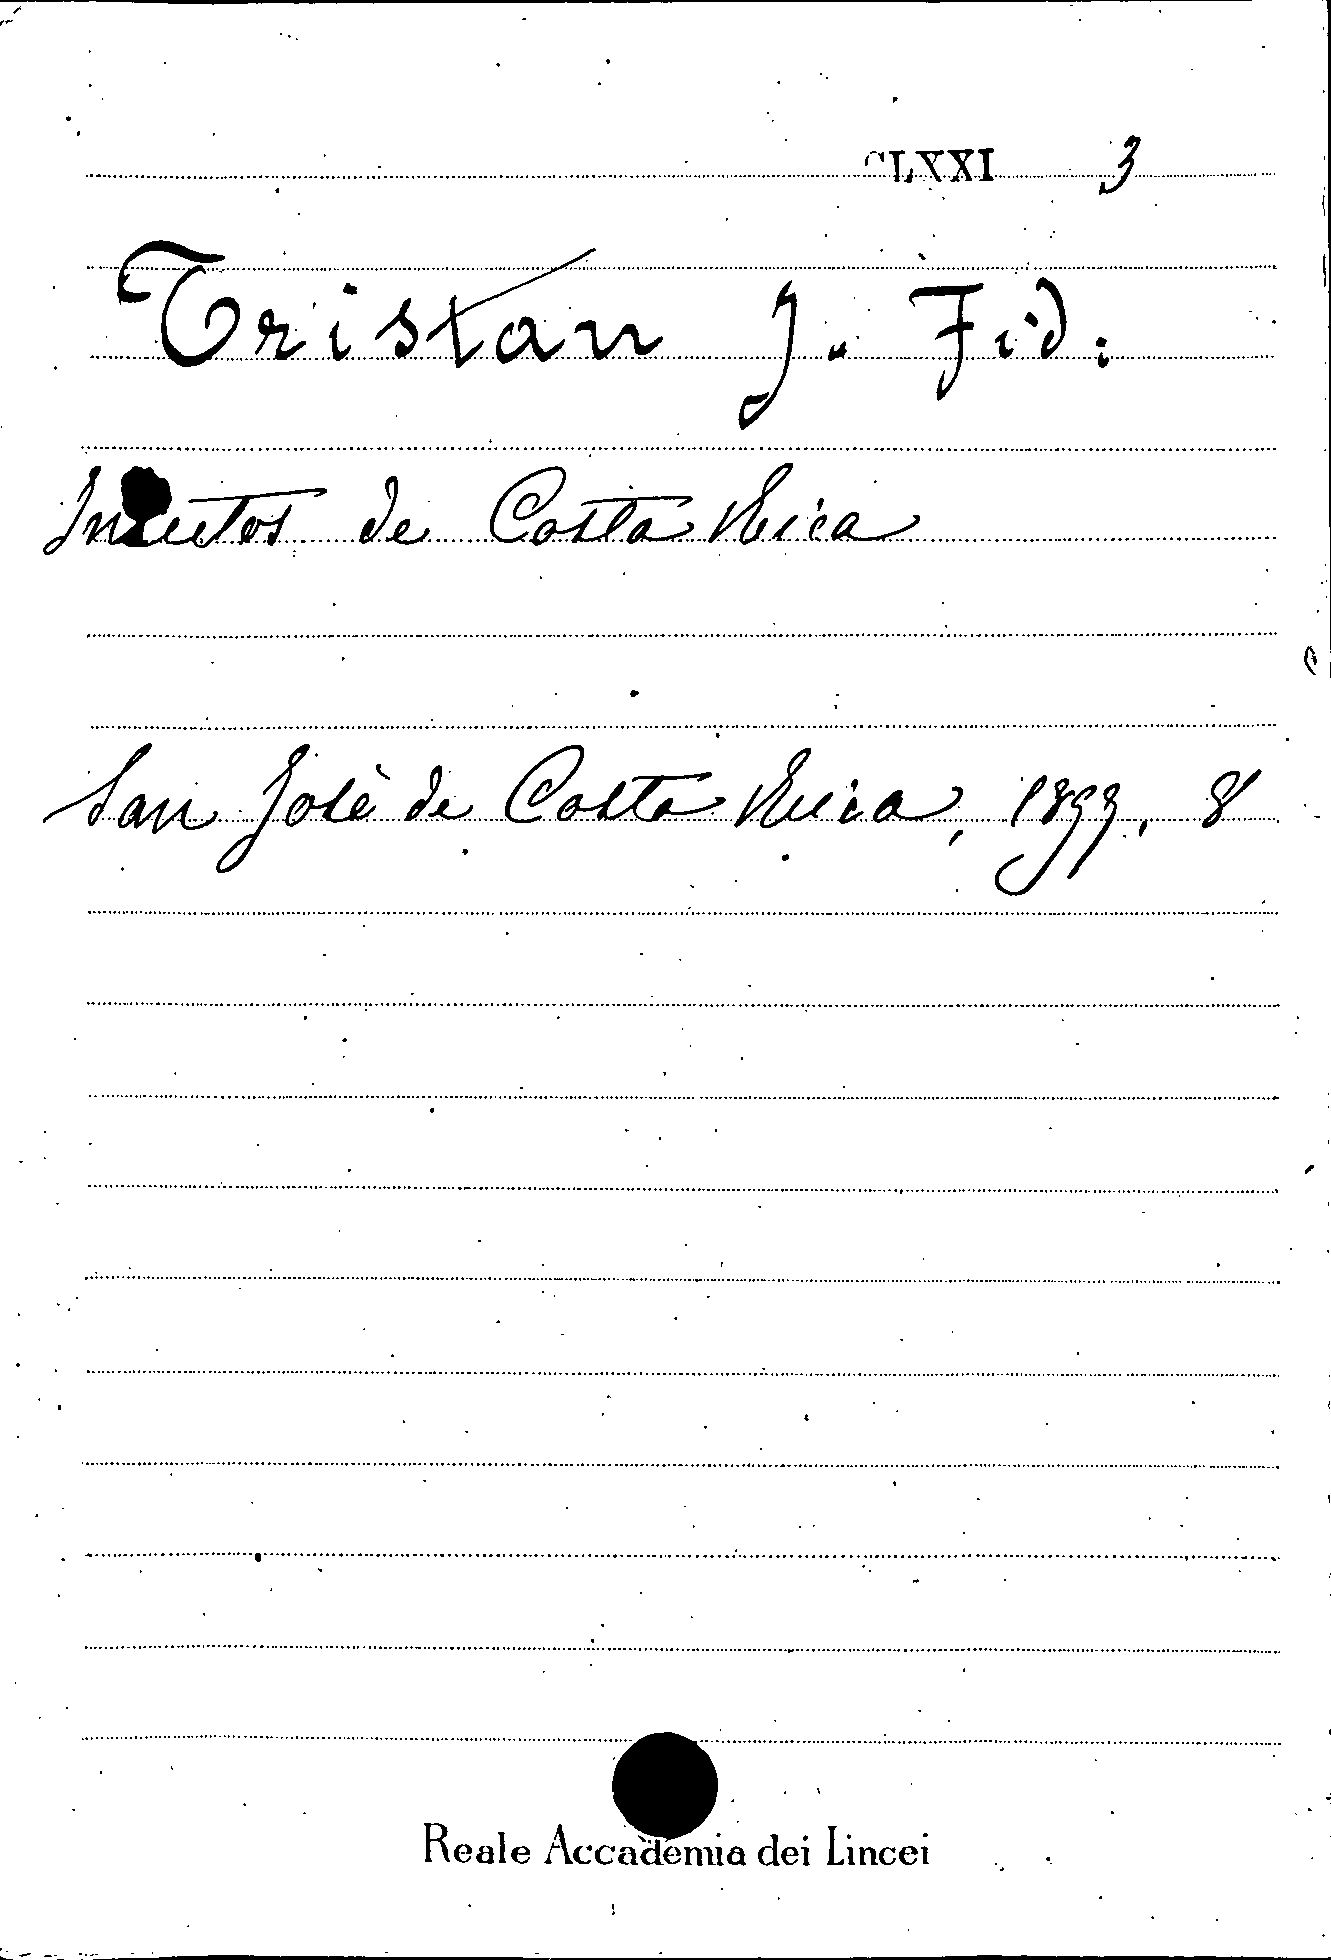 CLXXI 3
Tristan J. Fid:
Insectos de Costa Rica
San Josè de Costa Rica, 1899, 8
Reale Accademia dei Lincei